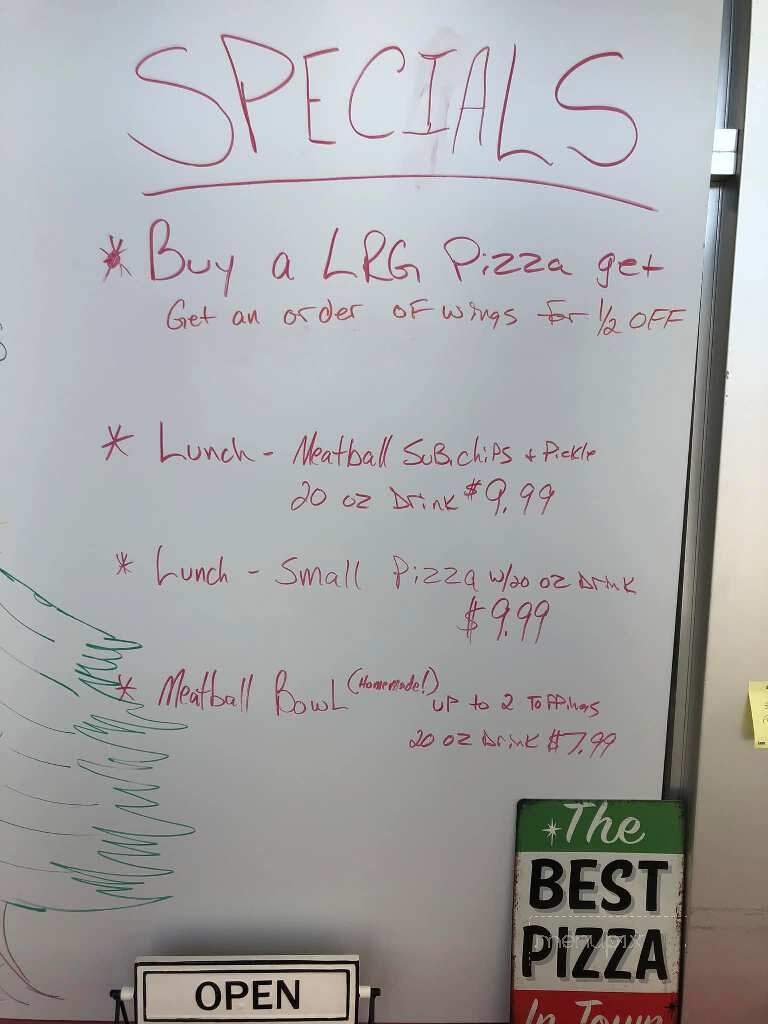 SPECIALS
* Buy a LRG Pizza get
Get an order of wings for 1/2 OFF
* Lunch - Meatball Sub, chips + Pickle
20 oz Drink $9.99
* Lunch - Small Pizza w/20 oz Drink
$9.99
* Meatball Bowl (Homemade!) up to 2 Toppings
20 oz Drink $7.99
The
BEST
PIZZA
In Town
OPEN
menupix